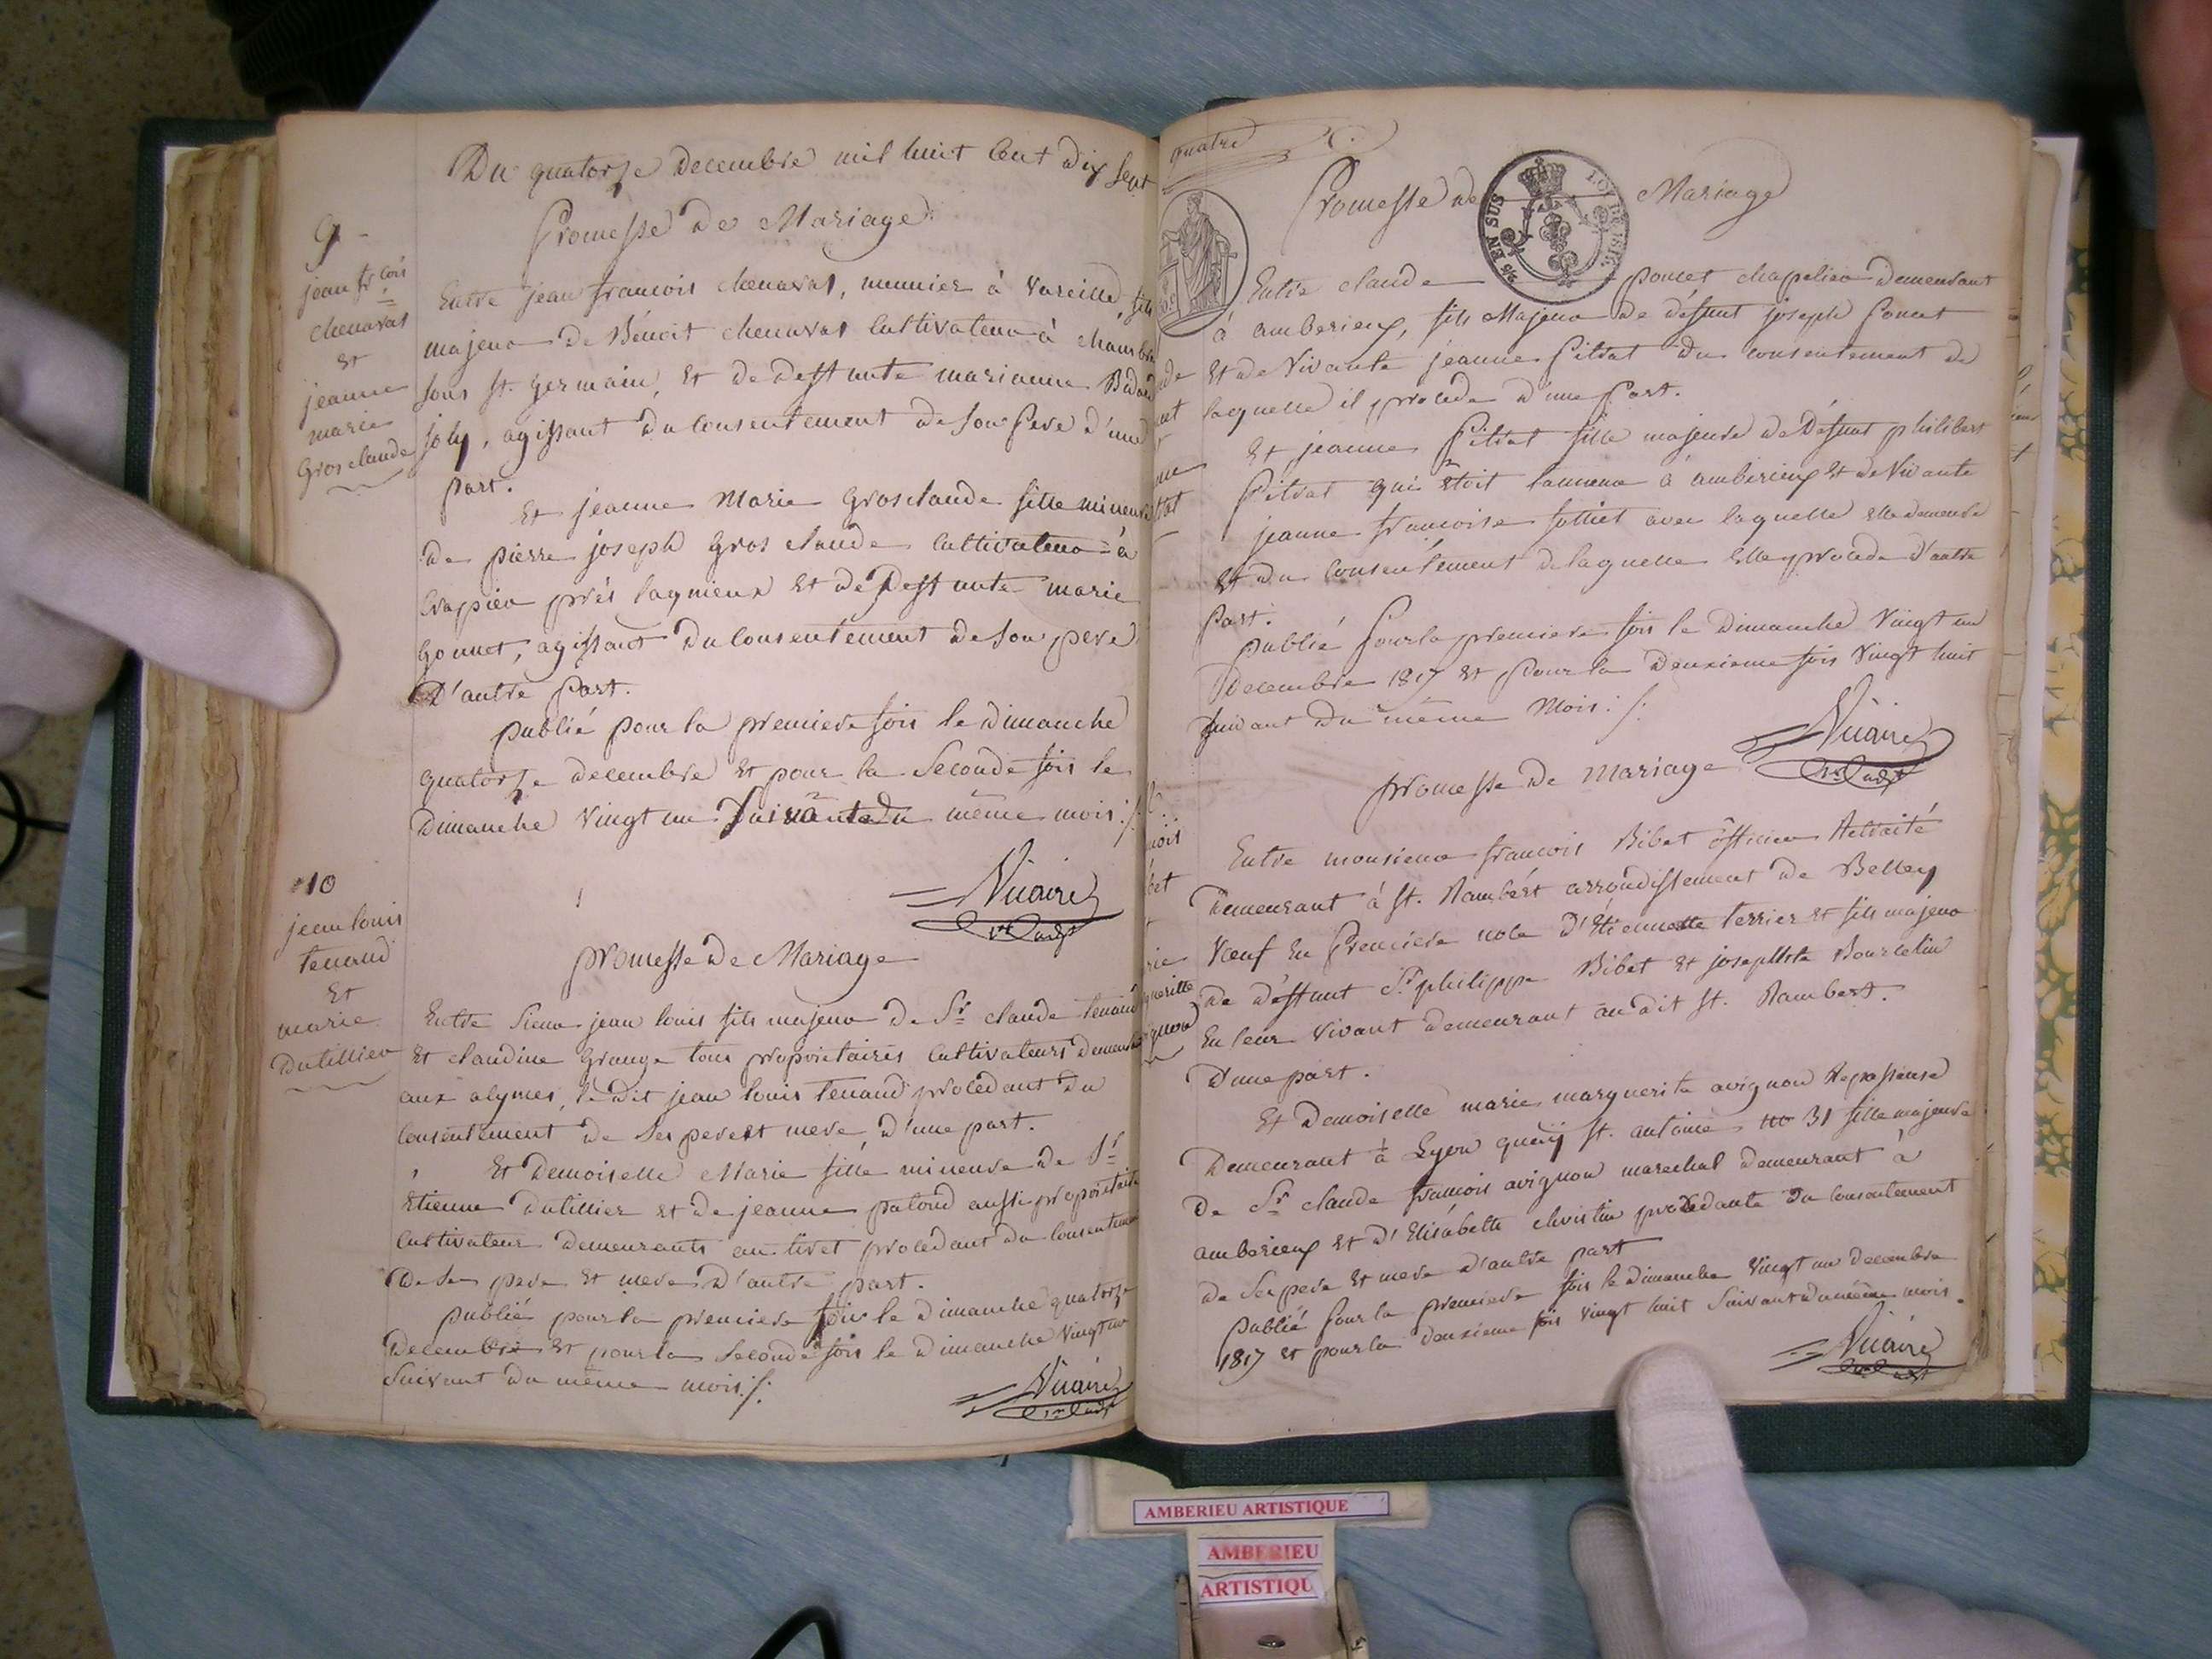 Du quatorze decembre mil huit Cent dix Sept
Promesse de Mariage
9
jean frcois
chenaval
et
jeanne
marie
Grosclaude
Entre jean francois chenaval, meunier à Vareille, fils
majeur de Bénoit chenaval Cultivateur à
sous St. Germain, et de deffunte marianne
joly, agissant du Consentement de Son Pere d'une
Part.
Et jeanne Marie Grosclaude fille mineure
de pierre joseph Gros claude Cultivateur à
prés lagnieux et de Deffunte marie
Gonnet, agissant du Consentement de Son pere
D'autre Part.
Publié pour la premiere fois le dimanche
quatorze decembre et pour la Seconde fois le
Dimanche Vingt un Suivant du même mois ./.
Vicaire
10
jean louis
tenand
Et
marie
Dutillier
promesse de Mariage
Entre Sieur jean louis fils majeur de Sr. claude tenand
et claudine Grange tous propriétaires Cultivateurs
aux alymes, le dit jean louis tenand procédant du
Consentement de Ses pere et mere, d'une part.
Et Demoiselle Marie fille mineure de Sr.
Etienne dutillier et de jeanne patoud aussi propriétaire
Cultivateur demeurants au tiret procédant du Consentement
de Ses pere et mere d'autre part.
Publié pour la premiere fois le dimanche quatorze
Decembre et pour la Seconde fois le dimanche Vingt un
Suivant du même mois ./.
Vicaire
quatre
Promesse de Mariage
Entre claude poncet chapelier demeurant
à amberieux, fils Majeur de défunt joseph Poncet
et de Vivante jeanne Pitrat du consentement de
laquelle il procede d'une Part.
Et jeanne Pitrat fille majeure de Défunt philibert
Pitrat qui étoit tanneur à amberieux et de Vivante
jeanne francoise avec laquelle elle demeure
et du Consentement de laquelle elle procede d'autre
Part.
Publié Pour la premiere fois le Dimanche Vingt un
Decembre 1817 et Pour la Deuxieme fois Vingt huit
Suivant du même Mois ./.
Vicaire
promesse de Mariage
Entre monsieur francois Bibet officier Retraité
Demeurant à St. Rambert arrondissement de Belley
Veuf en Premiere noce d'Etiennette terrier et fils majeur
de déffunt Sr philippe Bibet et josephte Bourdelin
En leur Vivant demeurant au dit St. Rambert.
D'une part.
Et Demoiselle marie marguerite avignon Repasseuse
Demeurant à Lyon quay St. antoine no 31 fille majeure
de Sr. claude francois avignon marechal demeurant à
amberieux et d'Elisabeth christin procédante du Consentement
de Ses pere et mere d'autre part
Publié Pour la premiere fois le dimanche Vingt un decembre
1817 et pour la deuxieme fois vingt huit Suivant du même mois.
Vicaire
AMBERIEU ARTISTIQUE
AMBERIEU
ARTISTIQU